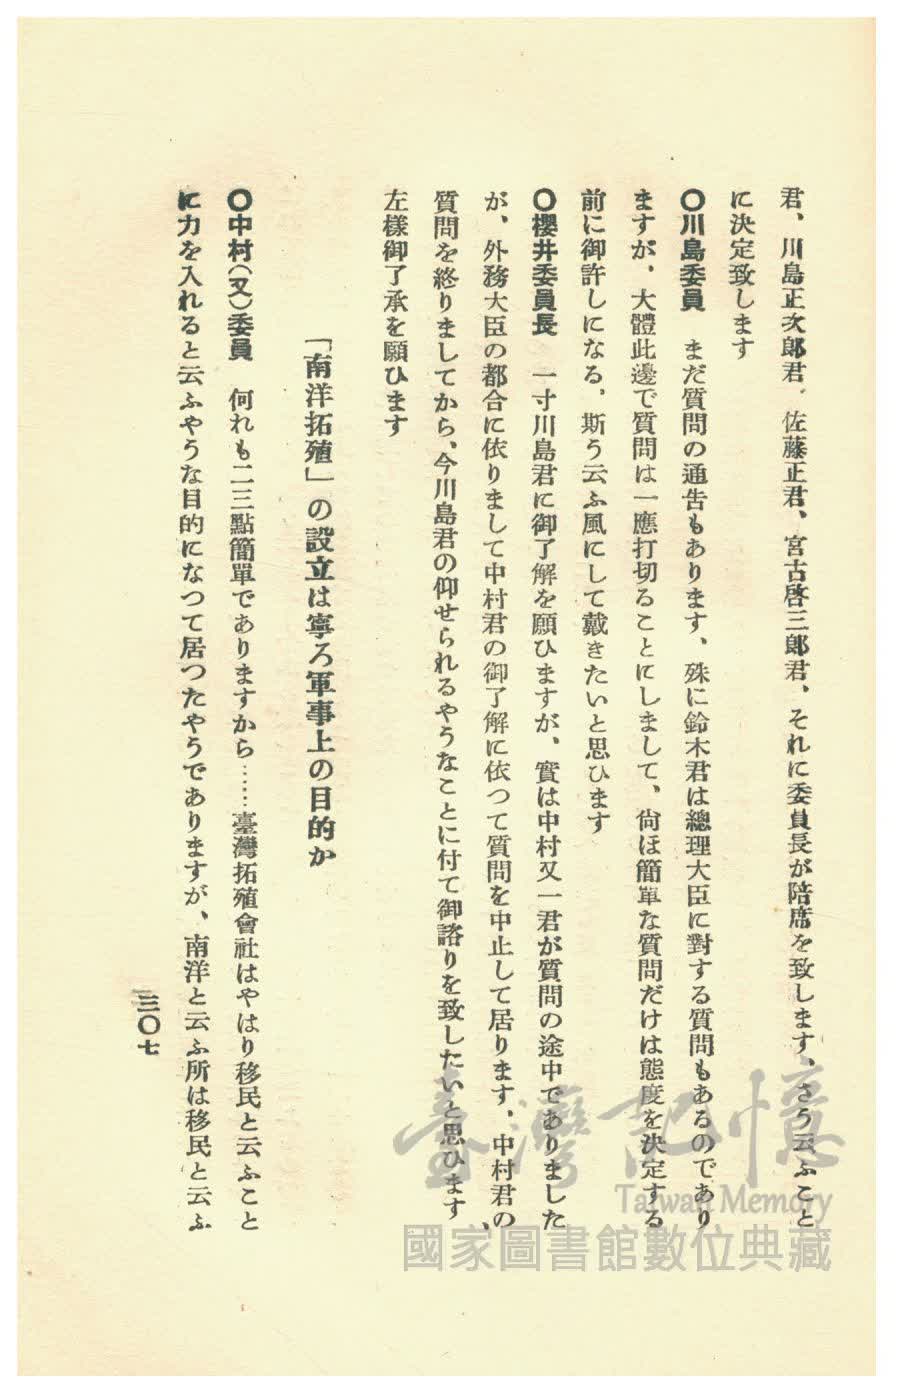 君、川島正次郎君、佐藤正君、宮古啓三郎君、それに委員長が陪席を致します、さう云ふこと
に決定致します
〇川島委員　まだ質問の通告もあります、殊に鈴木君は總理大臣に對する質問もあるのであり
ますが、大體此邊で質問は一應打切ることにしまして、尙ほ簡單な質問だけは態度を決定する
前に御許しになる、斯う云ふ風にして戴きたいと思ひます
〇櫻井委員長　一寸川島君に御了解を願ひますが、實は中村又一君が質問の途中でありました
が、外務大臣の都合に依りまして中村君の御了解に依つて質問を中止して居ります、中村君の
質問を終りましてから、今川島君の仰せられるやうなことに付て御諮りを致したいと思ひます、
左樣御了承を願ひます
「南洋拓殖」の設立は寧ろ軍事上の目的か
〇中村(又)委員　何れも二三點簡單でありますから……臺灣拓殖會社はやはり移民と云ふこと
に力を入れると云ふやうな目的になつて居つたやうでありますが、南洋と云ふ所は移民と云ふ
三〇七
臺灣記憶
Taiwan Memory
國家圖書館數位典藏